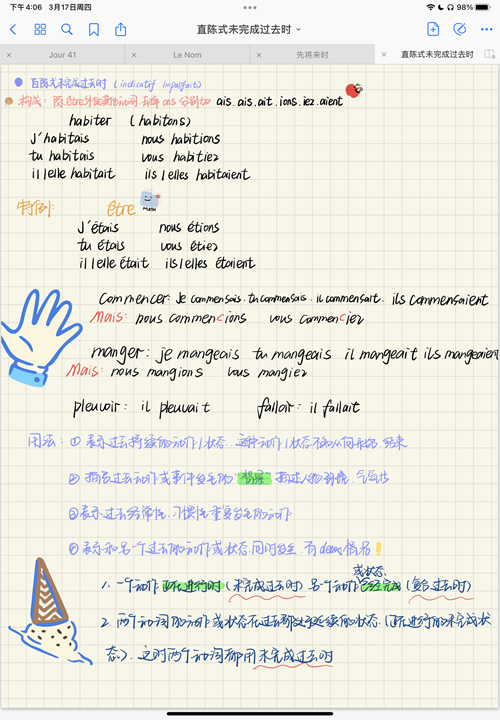 下午4:06 3月17日周四
98%
直陈式未完成过去时
Jour 41
Le Nom
先将来时
直陈式未完成过去时
直陈式未完成过去时 (indicatif imparfait)
构成: 除être外 ons 分别加 ais. ais. ait. ions. iez. aient
habiter (habitons)
J'habitais nous habitions
tu habitais vous habitiez
il/elle habitait ils/elles habitaient
特例: être
J'étais nous étions
tu étais vous étiez
il/elle était ils/elles étaient
commencer: je commensais. tu commensais. il commensait. ils commensaient
Mais: nous commencions vous commenciez
manger: je mangeais tu mangeais il mangeait ils mangeaient
Mais: nous mangions vous mangiez
pleuvoir: il pleuvait falloir: il fallait
用法: ① 表示过去持续的动作/状态. 这种动作/状态不知从何开始. 结束
② 描写过去动作或事件发生的"背景" 描述人物. 环境. 气氛
③ 表示过去经常性. 习惯性重复发生的动作
④ 表示和另一个过去的动作或状态同时发生. 有deux情况!
1. 一个动作正在进行时 (未完成过去时) 另一个动作或状态已经完成 (复合过去时)
2. 两个动词的动作或状态在过去都处于延续的状态. (正在进行的未完成状
态). 这时两个动词都用未完成过去时